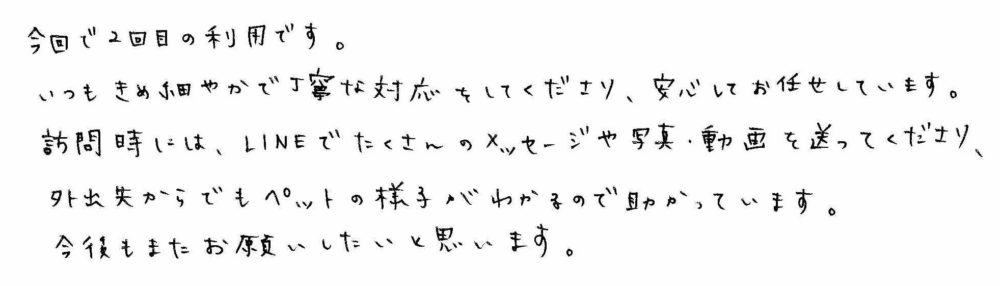 今回で2回目の利用です。
いつもきめ細やかで丁寧な対応をしてくださり、安心してお任せしています。
訪問時には、LINEでたくさんのメッセージや写真・動画を送ってくださり、
外出先からでもペットの様子がわかるので助かっています。
今後もまたお願いしたいと思います。